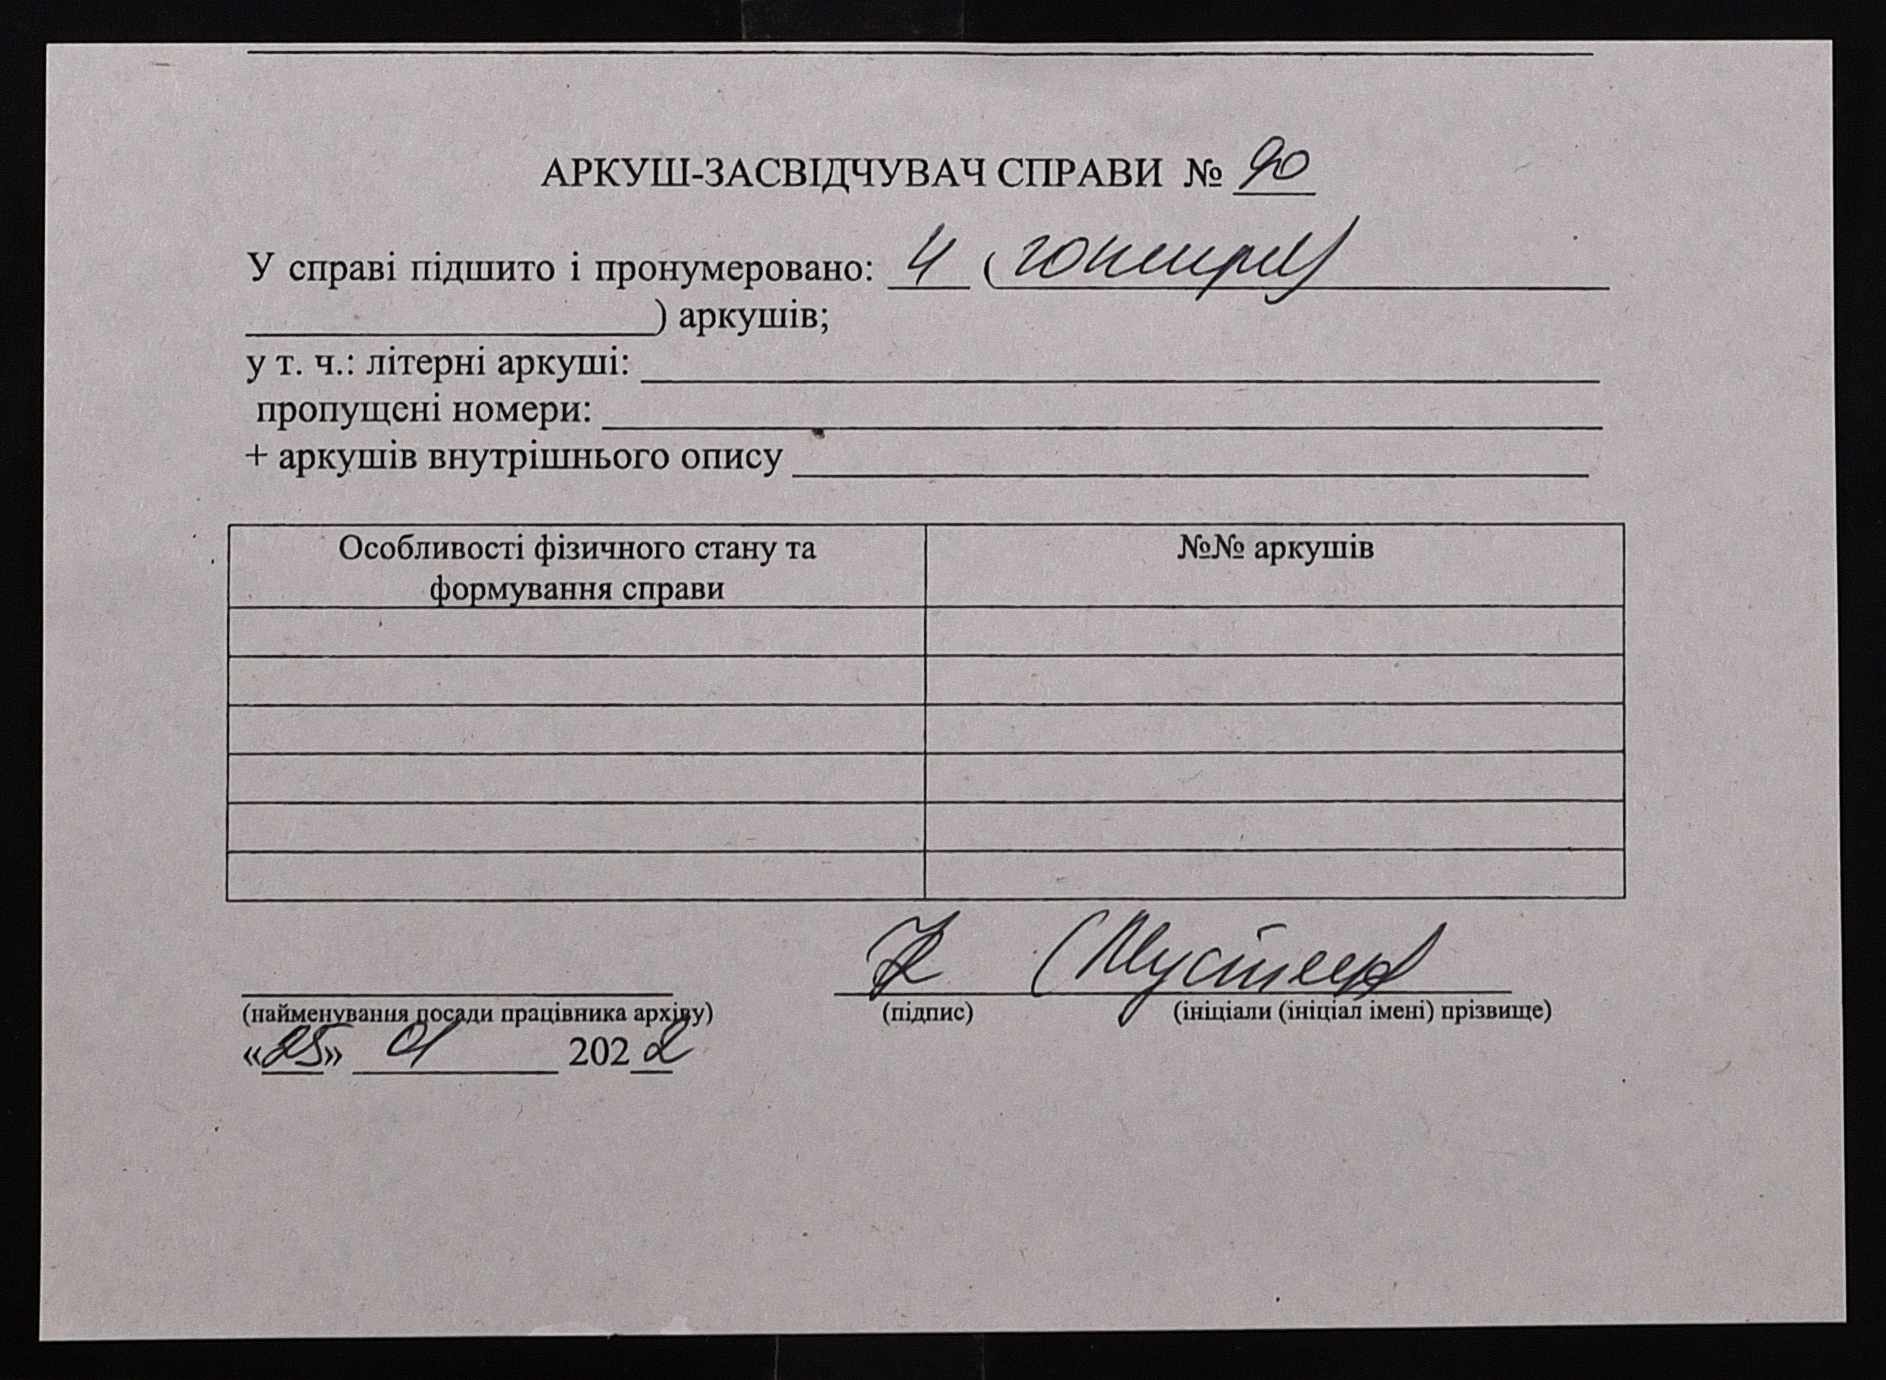 АРКУШ-ЗАСВІДЧУВАЧ СПРАВИ № 90
У справі підшито і пронумеровано: 4 (чотири
) аркушів;
у т. ч.: літерні аркуші:
пропущені номери:
+ аркушів внутрішнього опису
Особливості фізичного стану та
формування справи
№№ аркушів
(найменування посади працівника архіву)
(підпис)
(ініціали (ініціал імені) прізвище)
«25» 01 2022